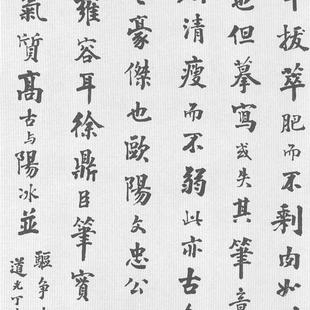 拔萃肥而不剩肉如
也但摹寫或失其筆意
清瘦而不弱此亦古
豪傑也歐陽文忠公
雍容耳徐鼎臣筆實
氣質高古与陽冰並
驅争
道光丁